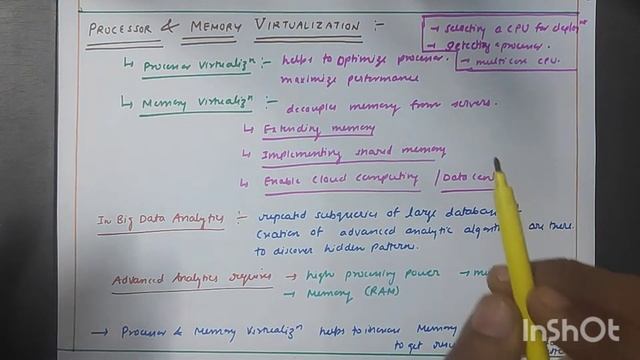 PROCESSOR & MEMORY VIRTUALIZATION :-
→ selecting a CPU for deploymt
→ selecting a processor.
→ multicore CPU.
↳ Processor Virtualizn :- helps to optimize processor.
maximize performance
↳ Memory Virtualizn :- decouples memory from servers.
↳ Extending memory
↳ Implementing shared memory
↳ Enable Cloud computing / Data cen
In Big Data Analytics :- repeated subqueries of large database
Creation of advanced analytic algorithm are there
to discover hidden pattern.
Advanced Analytics requires → high processing power
→ Memory (RAM)
→ Processor & Memory Virtualizn helps to increase Memory
to get
InShOt